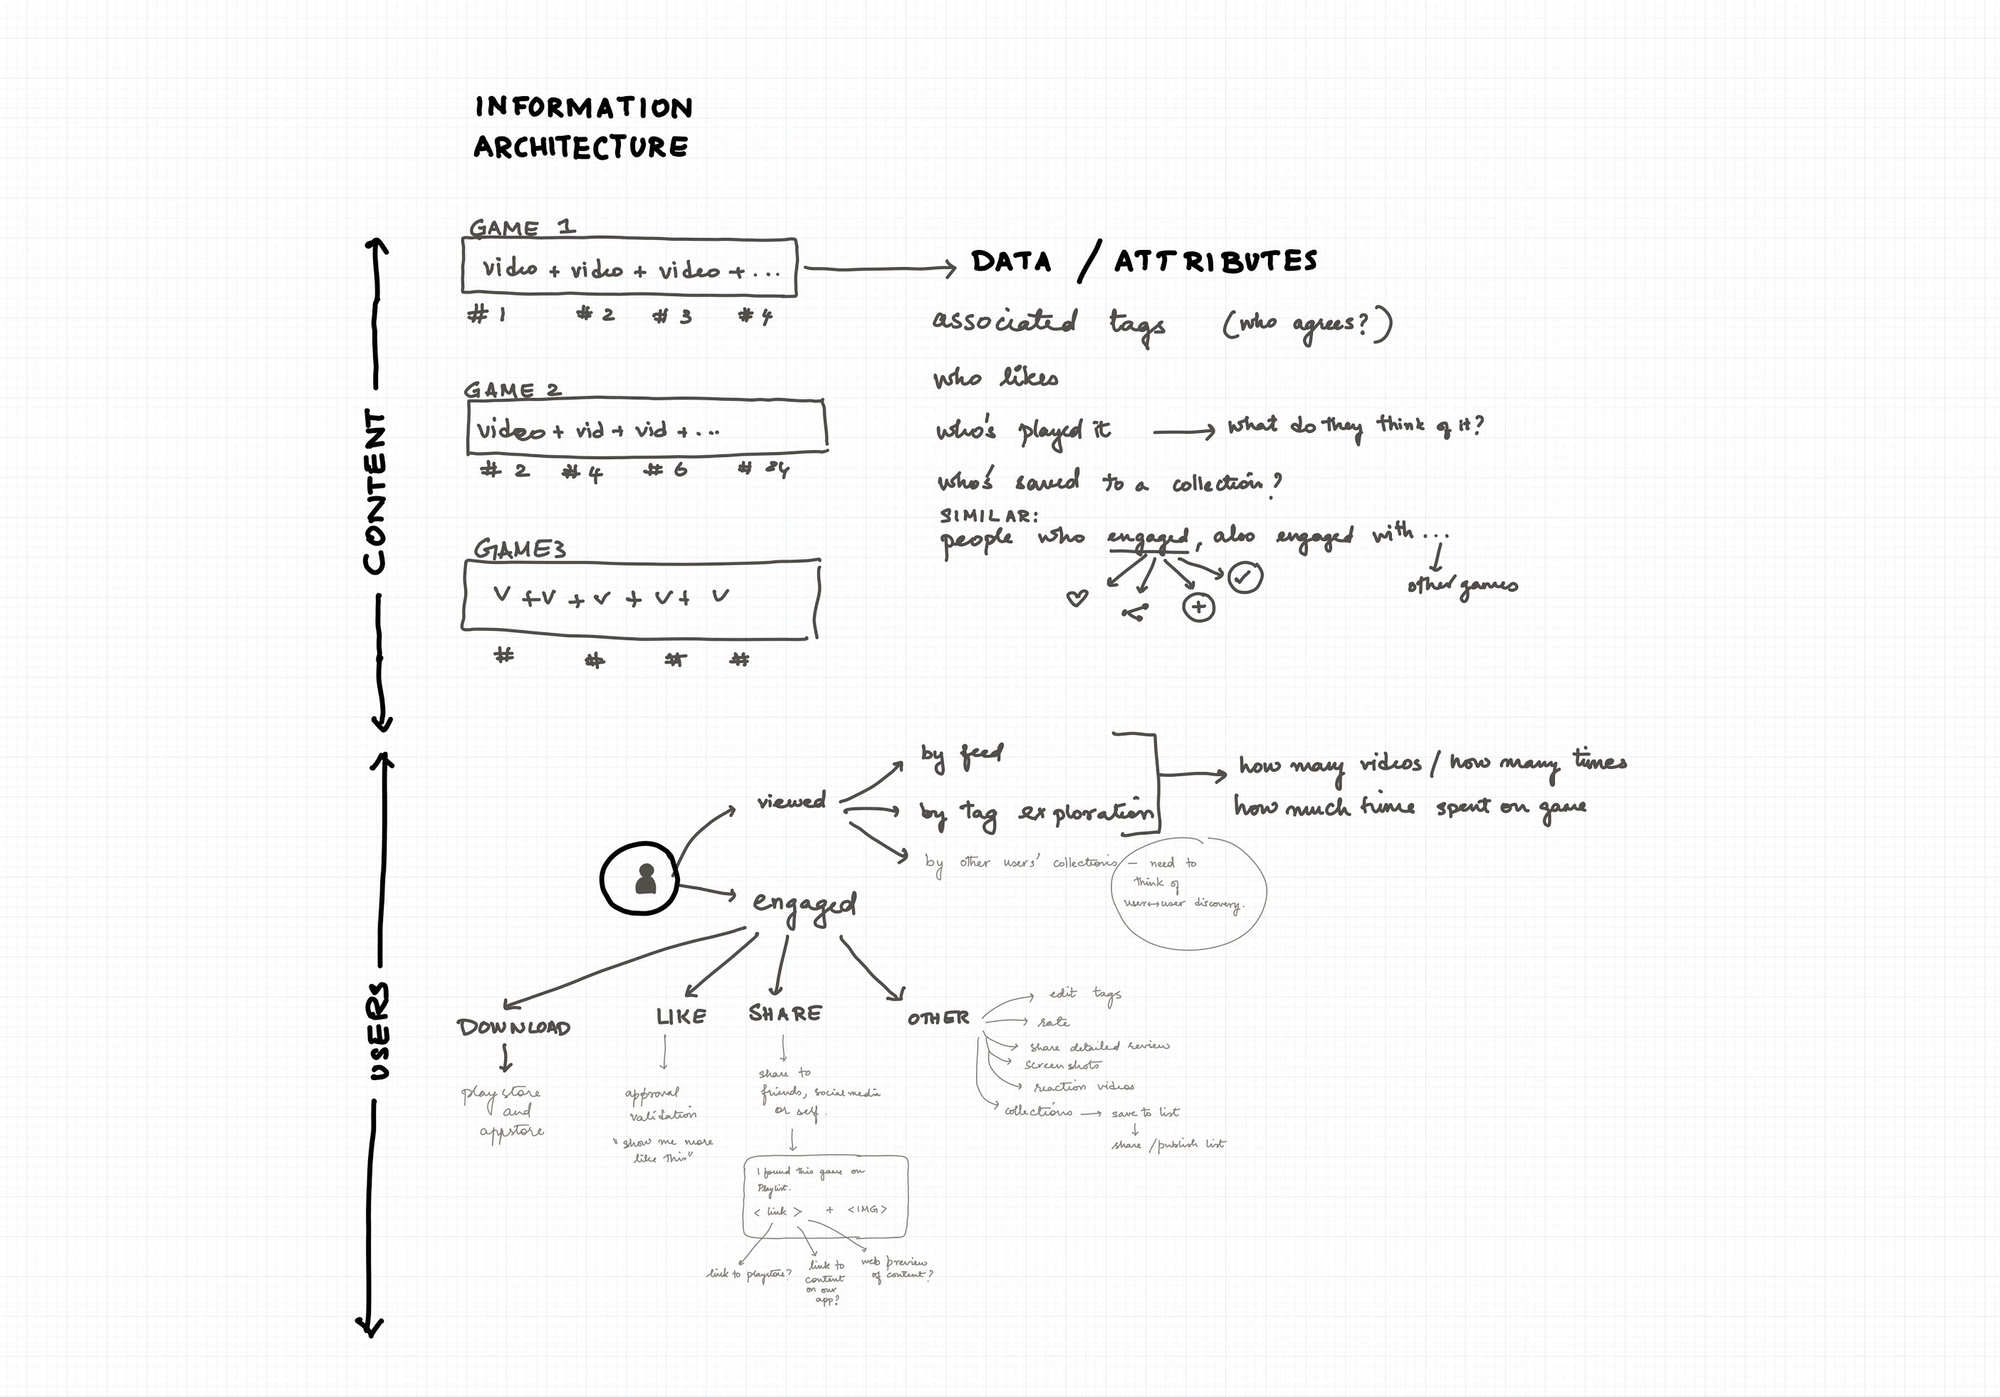 INFORMATION
ARCHITECTURE
GAME 1
video + video + video + ...
# 1 # 2 # 3 # 4
GAME 2
video + vid + vid + ...
# 2 # 4 # 6 # 34
GAME3
V +V + V + V+ V
# # # #
CONTENT
DATA / ATTRIBUTES
associated tags (who agrees?)
who likes
who's played it → what do they think of it?
who's saved to a collection?
SIMILAR:
people who engaged, also engaged with ...
other games
USERS
viewed
by feed
by tag exploration
by other users' collections — need to
think of
user↔user discovery.
how many videos / how many times
how much time spent on game
engaged
DOWNLOAD
play store
and
appstore
LIKE
approval
validation
"show me more
like this"
SHARE
share to
friends, social media
or self.
I found this game on
Playlist.
< link > + <IMG>
link to playstore?
link to
content
on our
app?
web preview
of content?
OTHER
edit tags
rate
share detailed review
screenshots
reaction videos
collections → save to list
share / publish list